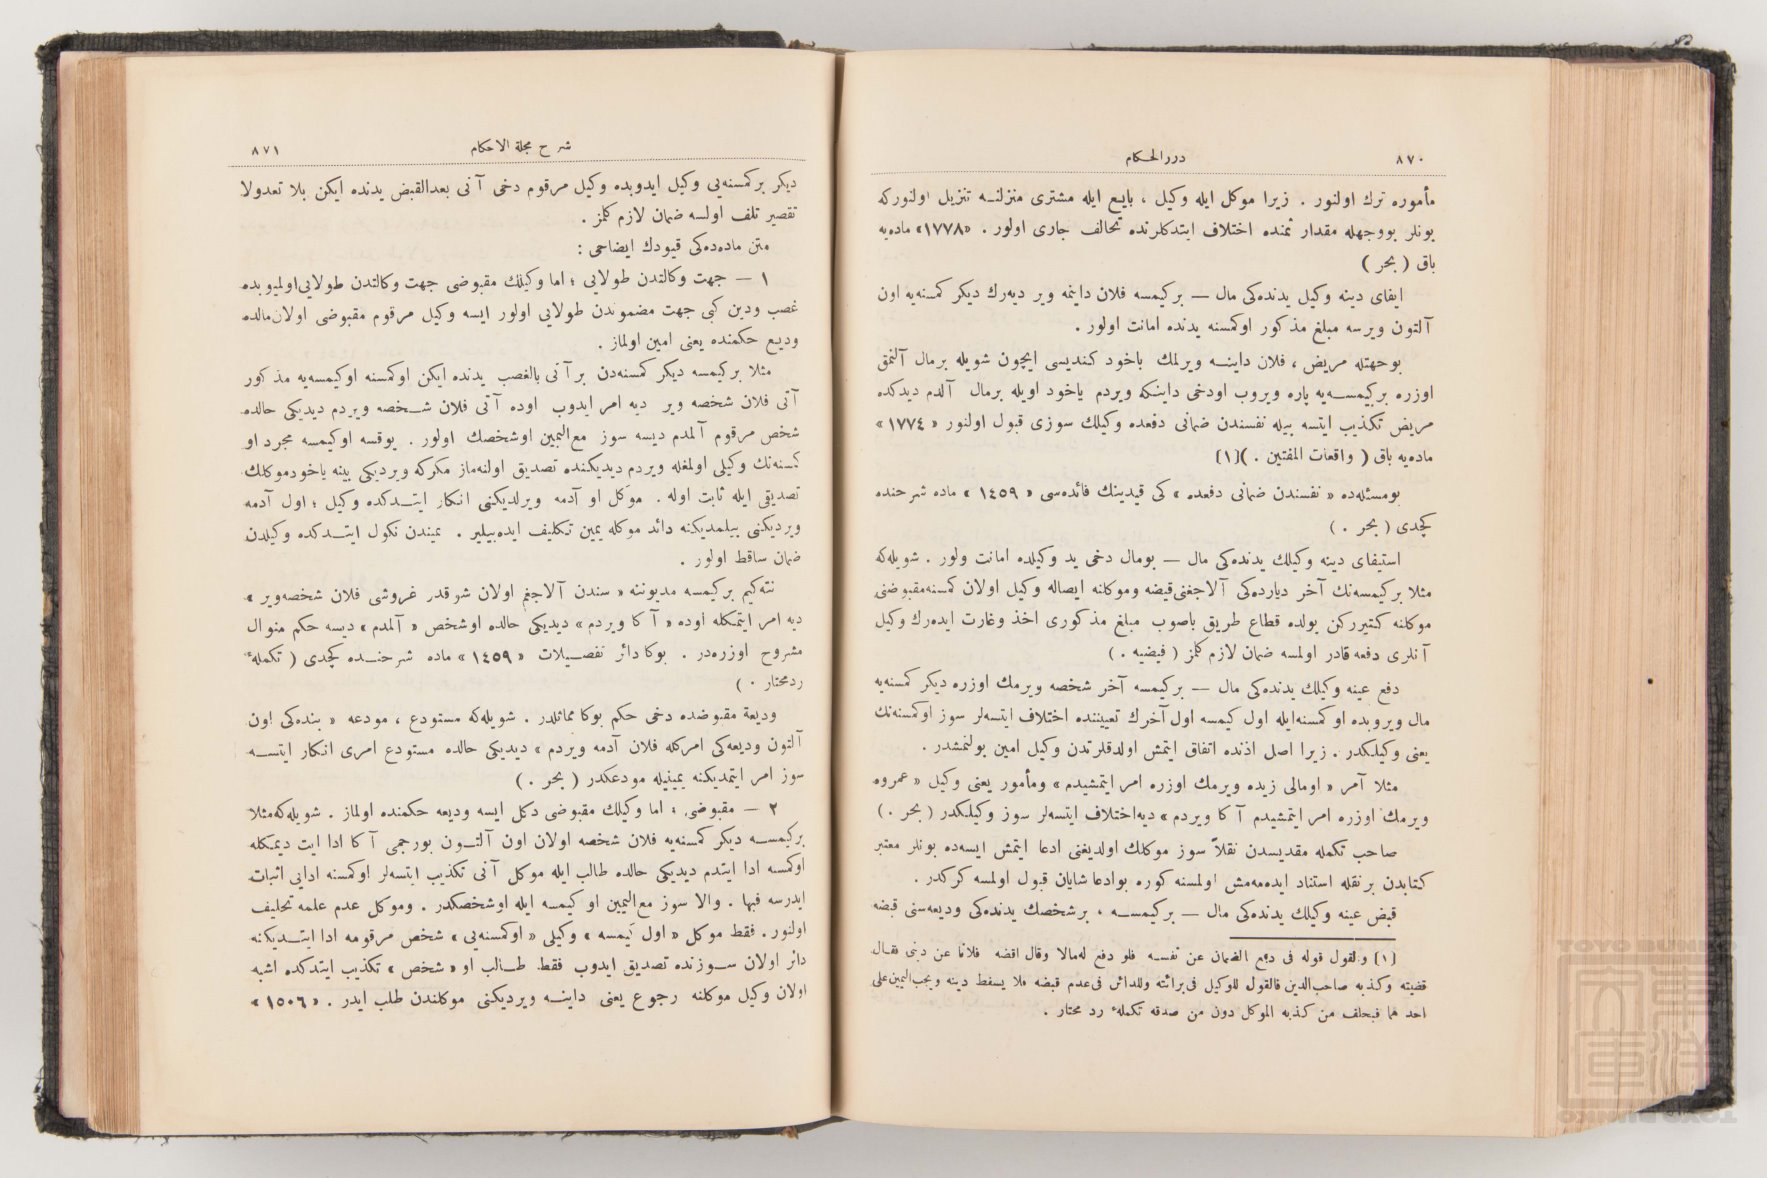 ٨٧٠
دررالحكام
مأموره ترك اولنور . زيرا موكل ايله وكيل ، بايع ايله مشترى منزلنه تنزيل اولنوركه
بونلر بووجهله مقدار ثمنده اختلاف ايتدكلرنده تحالف جارى اولور . «١٧٧٨» ماده‌يه
باق ( بحر )
ايفاى دينه وكيل يدنده‌كى مال — بركيمسه فلان داينمه وير ديه‌رك ديكر كمسنه‌يه اون
آلتون ويرسه مبلغ مذكور اوكمسنه يدنده امانت اولور .
بوجهتله مريض ، فلان داينه ويرلمك ياخود كنديسى ايچون شويله برمال آلنمق
اوزره بركيمسه‌يه پاره ويروب اودخى داينكه ويردم ياخود اويله برمال آلدم ديدكده
مريض تكذيب ايتسه بيله نفسندن ضمانى دفعده وكيلك سوزى قبول اولنور « ١٧٧٤ »
ماده‌يه باق ( واقعات المفتين . )[١]
بومسئله‌ده « نفسندن ضمانى دفعده » كى قيدينك فائده‌سى « ١٤٥٩ » ماده شرحنده
كچدى ( بحر . )
استيفاى دينه وكيلك يدنده‌كى مال — بومال دخى يد وكيلده امانت ولور . شويله‌كه
مثلا بركيمسه‌نك آخر ديارده‌كى آلاجغنى‌قبضه وموكلنه ايصاله وكيل اولان كمسنه‌مقبوضنى
موكلنه كتيرركن يولده قطاع طريق باصوب مبلغ مذكورى اخذ وغارت ايده‌رك وكيل
آنلرى دفعه قادر اولمسه ضمان لازم كلمز ( فيضيه . )
دفع عينه وكيلك يدنده‌كى مال — بركيمسه آخر شخصه ويرمك اوزره ديكر كمسنه‌يه
مال ويروبده اوكمسنه‌ايله اول كيمسه اول‌آخرك تعييننده اختلاف ايتسه‌لر سوز اوكمسنه‌نك
يعنى وكيلكدر . زيرا اصل اذنده اتفاق ايتمش اولدقلرتدن وكيل امين بولنمشدر .
مثلا آمر « اومالى زيده ويرمك اوزره امر ايتمشيدم » ومأمور يعنى وكيل « عمروه
ويرمك اوزره امر ايتمشيدم آكا ويردم » ديه‌اختلاف ايتسه‌لر سوز وكيلكدر ( بحر . )
صاحب تكمله مقديسدن نقلاً سوز موكلك اولديغنى ادعا ايتمش ايسه‌ده بونلر معتبر
كتابدن برنقله استناد ايده‌مه‌مش اولمسنه كوره بوادعا شايان قبول اولمسه كركدر .
قبض عينه وكيلك يدنده‌كى مال — بركيمسه ، برشخصك يدنده‌كى وديعه‌سنى قبضه
[١] والقول قوله فى دفع الضمان عن نفسه فلو دفع له‌مالا وقال اقضه فلانا عن دينى فقال
قضيته وكذبه صاحب‌الدين فالقول للوكيل فى‌برائته وللدائن فى‌عدم قبضه فلا يسقط دينه ويجب‌اليمين‌على
احدهما فيحلف من كذبه الموكل دون من صدقه تكملهٔ رد محتار .
شرح مجلة الاحكام
٨٧١
ديكر بركمسنه‌يى وكيل ايدوبده وكيل مرقوم دخى آنى بعدالقبض يدنده ايكن بلا تعدولا
تقصير تلف اولسه ضمان لازم كلمز .
متن ماده‌ده‌كى قيودك ايضاحى :
١ — جهت وكالتدن طولايى ؛ اما وكيلك مقبوضى جهت وكالتدن طولايى‌اولميوبده
غصب ودين كبى جهت مضموندن طولايى اولور ايسه وكيل مرقوم مقبوضى اولان‌مالده
وديع حكمنده يعنى امين اولماز .
مثلا بركيمسه ديكر كمسنه‌دن بر آتى بالغصب يدنده ايكن اوكمسنه اوكيمسه‌يه مذكور
آتى فلان شخصه وير ديه امر ايدوب اوده آتى فلان شخصه ويردم ديديكى حالده
شخص مرقوم آلمدم ديسه سوز مع‌اليمين اوشخصك اولور . يوقسه اوكيمسه مجرد او
كمسنه‌نك وكيلى اولمغله ويردم ديديكنده تصديق اولنه‌ماز مكركه ويرديكى بينه ياخودموكلك
تصديقى ايله ثابت اوله . موكل او آدمه ويرلديكنى انكار ايتدكده وكيل ؛ اول آدمه
ويرديكنى بيلمديكنه دائد موكله يمين تكليف ايده‌بيلير . يميندن نكول ايتدكده وكيلدن
ضمان ساقط اولور .
نته‌كيم بركيمسه مديوننه « سندن آلاجغم اولان شوقدر غروشى فلان شخصه‌وير »
ديه امر ايتمكله اوده « آكا ويردم » ديديكى حالده اوشخص « آلمدم » ديسه حكم منوال
مشروح اوزره‌در . بوكا دائر تفصيلات « ١٤٥٩ » ماده شرحنده كچدى ( تكملهٔ
ردمختار . )
وديعهٔ مقبوضه‌ده دخى حكم بوكا مماثلدر . شويله‌كه مستودع ، مودعه « بنده‌كى اون
آلتون وديعه‌كى امركله فلان آدمه ويردم » ديديكى حالده مستودع امرى انكار ايتسه
سوز امر ايتمديكنه يمينيله مودعكدر ( بحر . )
٢ — مقبوضى ؛ اما وكيلك مقبوضى دكل ايسه وديعه حكمنده اولماز . شويله‌كه‌مثلا
بركيمسه ديكر كمسنه‌يه فلان شخصه اولان اون آلتون بورجمى آكا ادا ايت ديمكله
اوكمسه ادا ايتدم ديديكى حالده طالب ايله موكل آنى تكذيب ايتسه‌لر اوكمسنه ادايى اثبات
ايدرسه فبها . والا سوز مع‌اليمين اوكيمسه ايله اوشخصكدر . وموكل عدم علمه تحليف
اولنور . فقط موكل « اول كيمسه » وكيلى « اوكمسنه‌يى » شخص مرقومه ادا ايتديكنه
دائر اولان سوزنده تصديق ايدوب فقط طالب او « شخص » تكذيب ايتدكده اشبه
اولان وكيل موكلنه رجوع يعنى داينه ويرديكنى موكلندن طلب ايدر . « ١٥٠٦ »
TOYO BUNKO